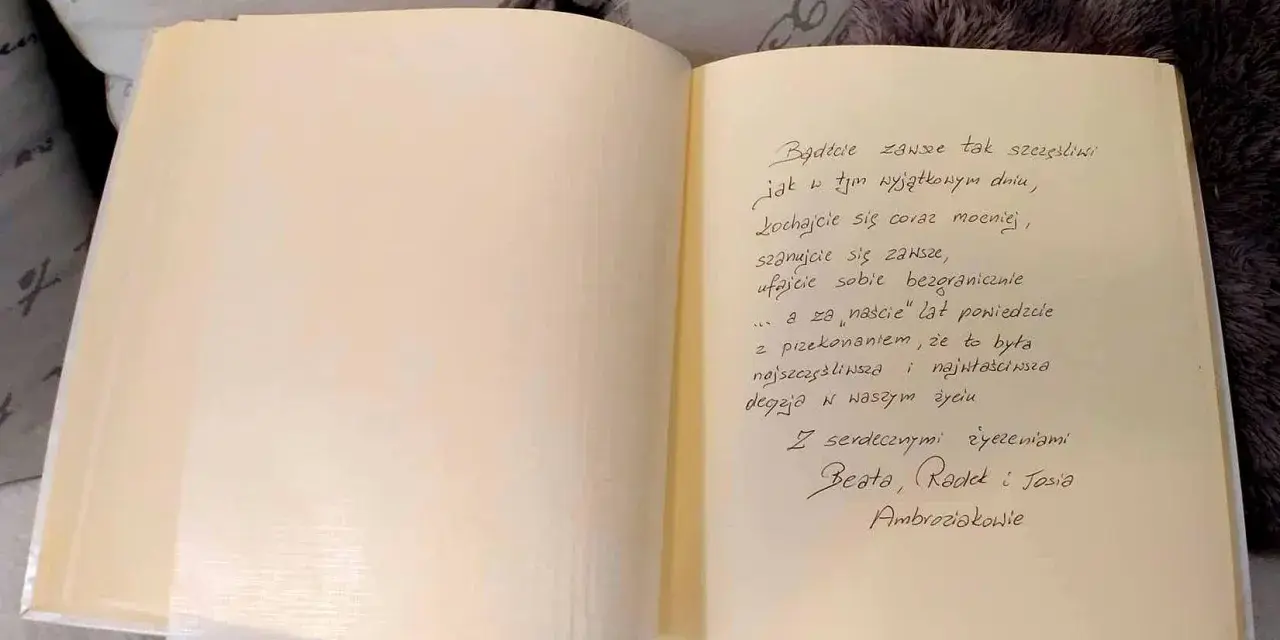 Bądźcie zawsze tak szczęśliwi
jak w tym wyjątkowym dniu,
kochajcie się coraz mocniej,
szanujcie się zawsze,
ufajcie sobie bezgranicznie
... a za „naście" lat powiedzcie
z przekonaniem, że to była
najszczęśliwsza i najwłaściwsza
decyzja w waszym życiu
Z serdecznymi życzeniami
Beata, Radek i Tosia
Ambroziakowie